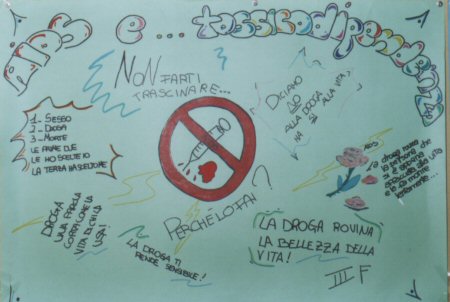 AIDS e... tossicodipendenza
NON FARTI
TRASCINARE...
DICIAMO
NO
ALLA DROGA
MA SÌ ALLA VITA
1- SESSO
2- DROGA
3- MORTE
LE PRIME DUE
LE HO SCELTE IO
LA TERZA HA SCELTO ME
NO
PERCHE LO FAI?
AIDS
la droga
la persona che
si è appena
affacciata alla vita
e la fa morire
lentamente...
DROGA
UNA PAROLA
CORROMPE LA
VITA DI CHI LA
USA!
LA DROGA TI
RENDE SENSIBILE!
LA DROGA ROVINA
LA BELLEZZA DELLA
VITA!
III F